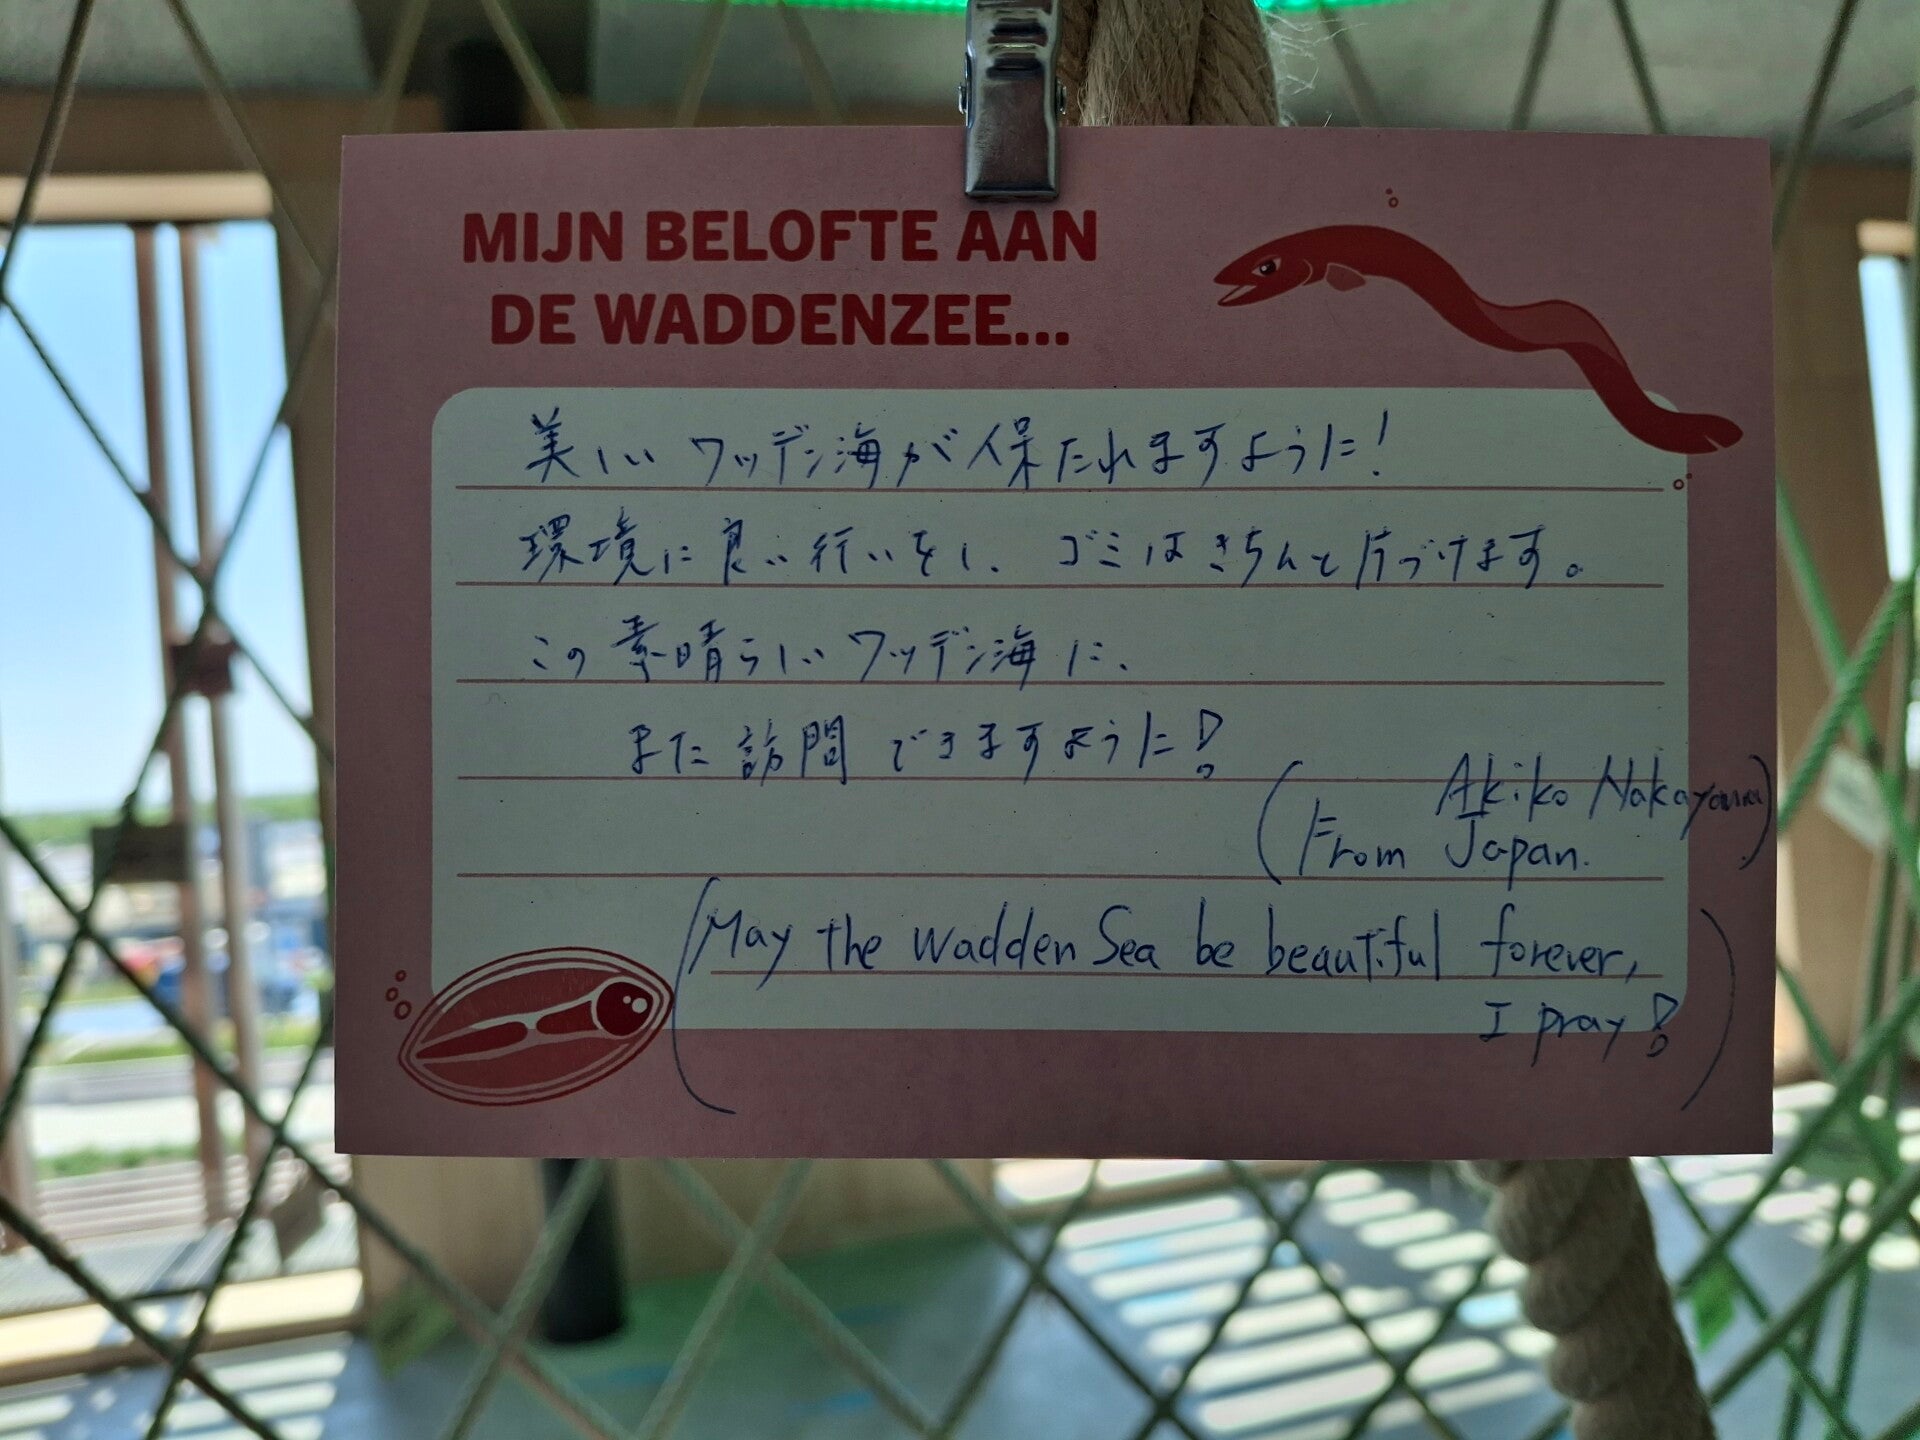 MIJN BELOFTE AAN
DE WADDENZEE...
美しいワッデン海が保たれますように!
環境に良い行いをし、ゴミはきちんと片づけます。
この素晴らしいワッデン海に、
また訪問できますように!
(Akiko Nakayama)
(From Japan.
(May the wadden Sea be beautiful forever,
I pray!)